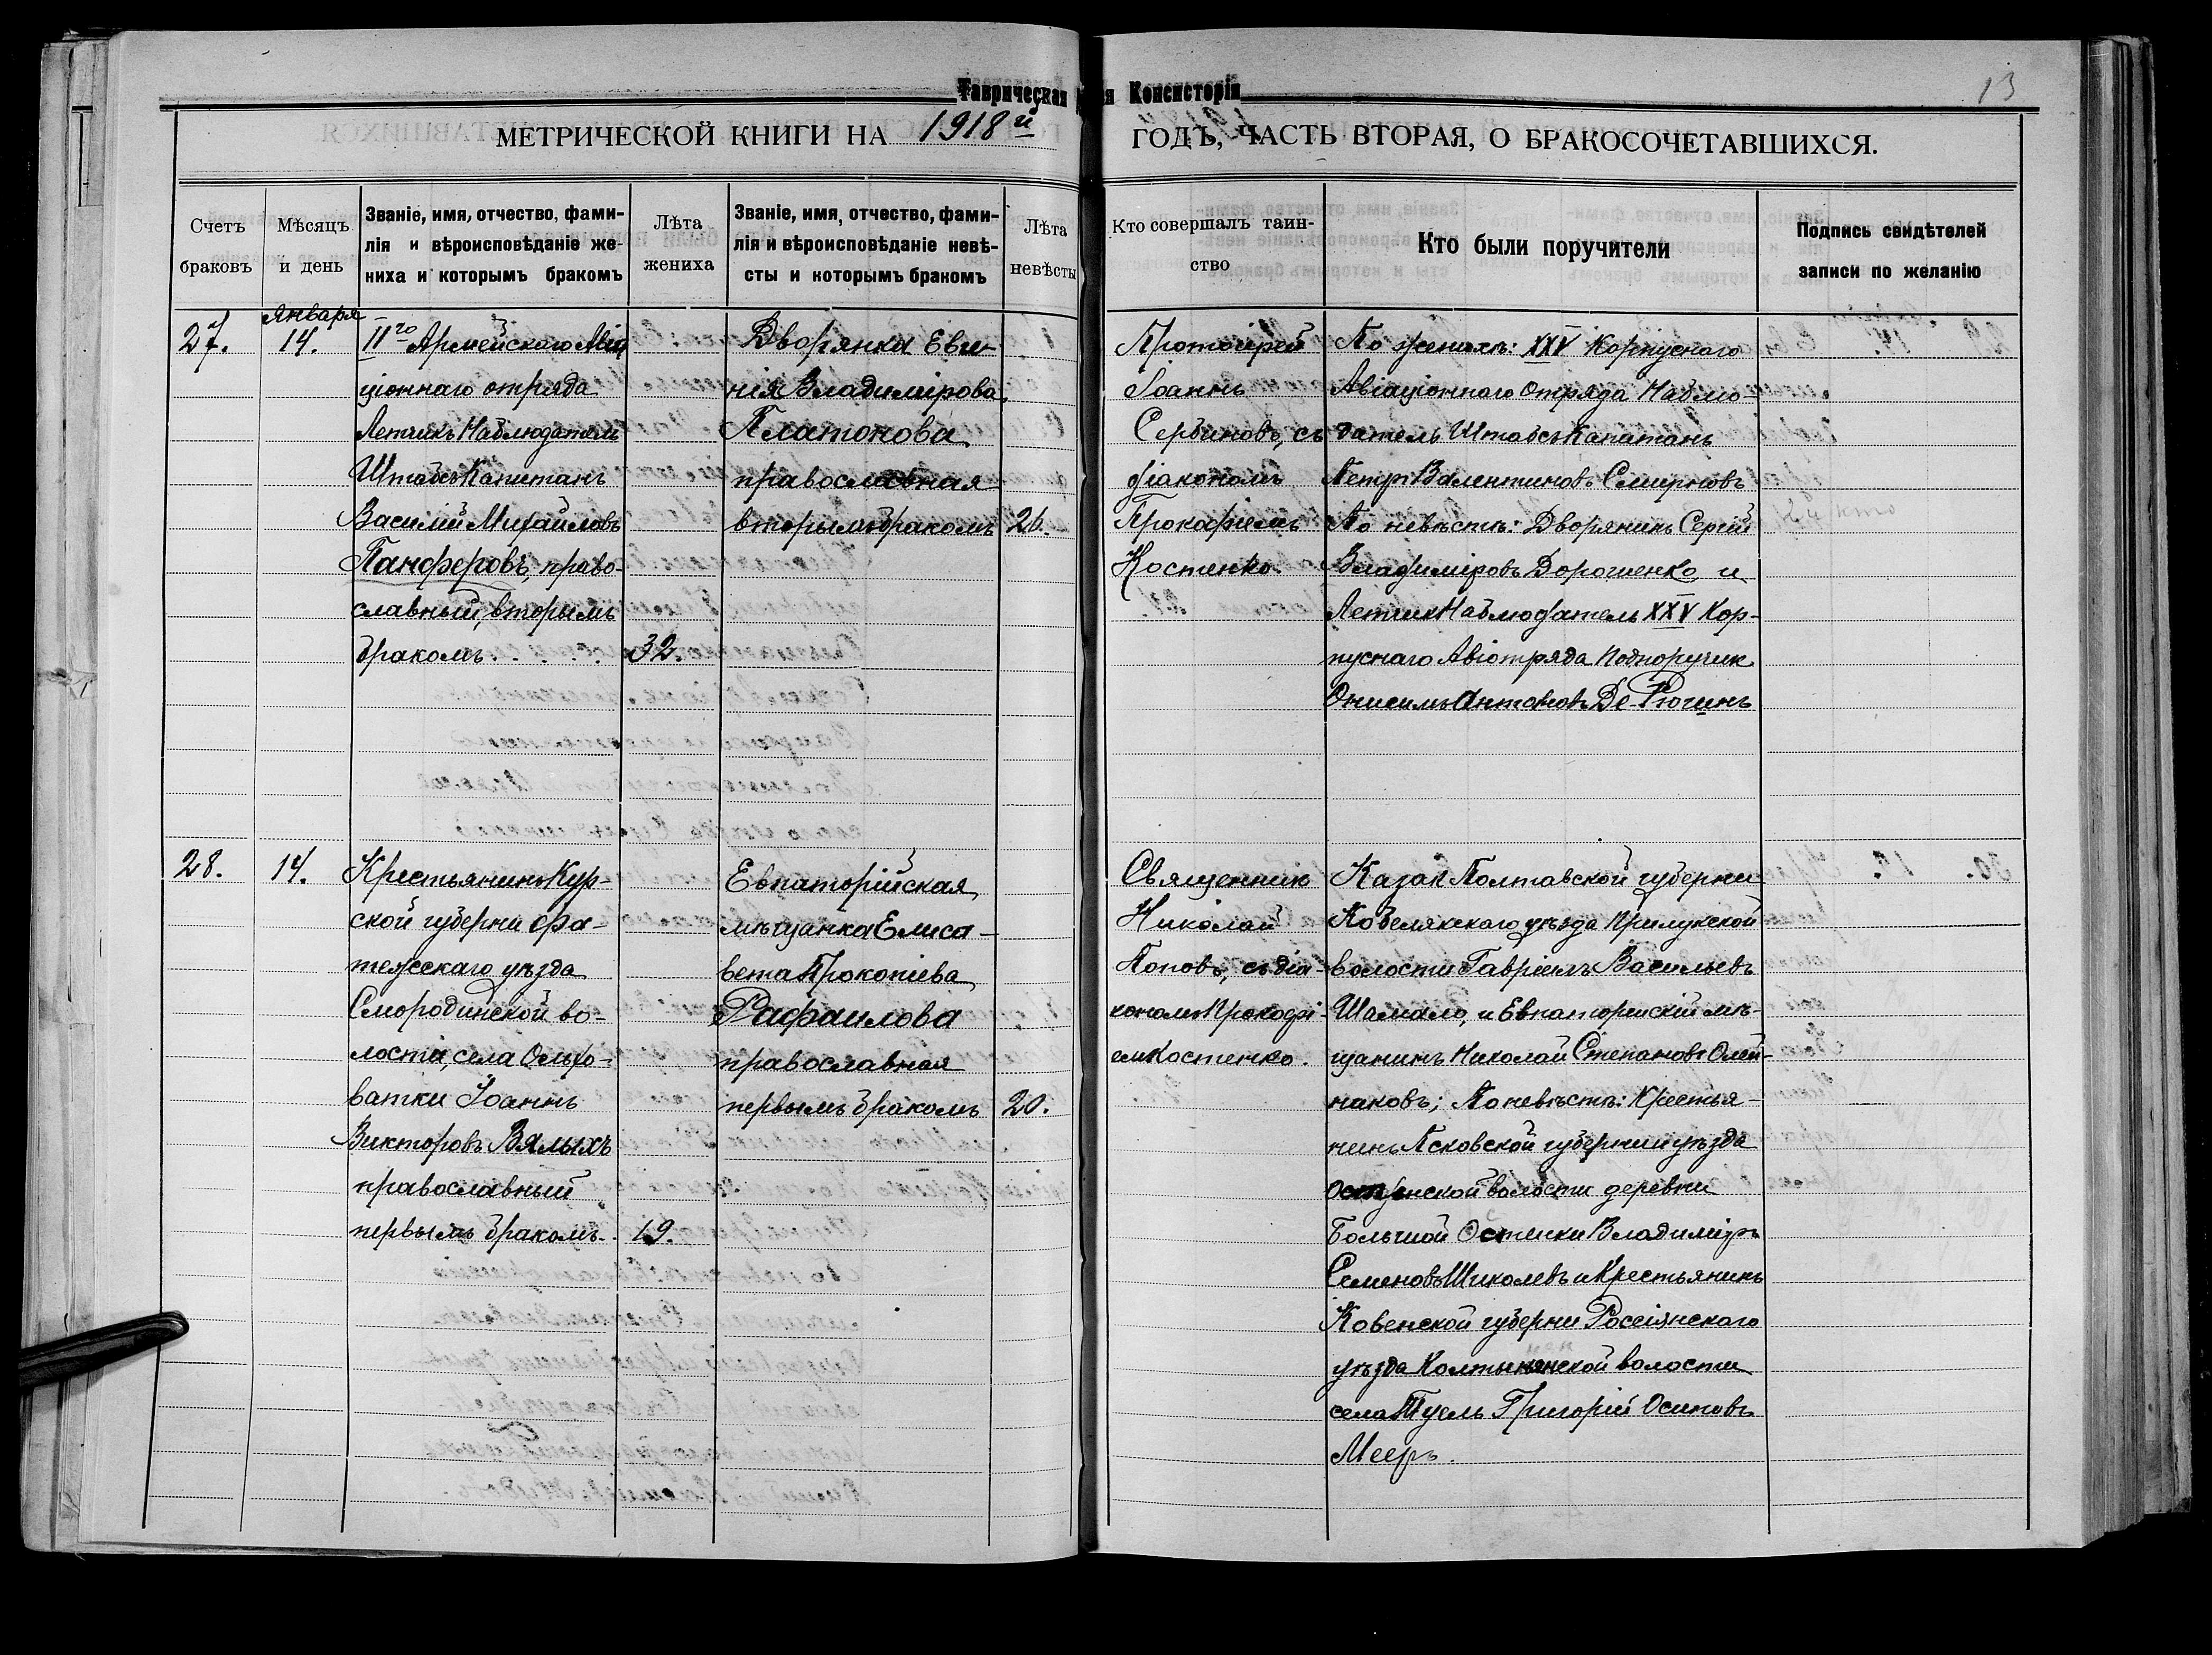 Таврическая
я Консисторіи
13
МЕТРИЧЕСКОЙ КНИГИ НА 1918й
ГОДЪ, ЧАСТЬ ВТОРАЯ, О БРАКОСОЧЕТАВШИХСЯ.
Счетъ браковъ
Мѣсяцъ и день
Званіе, имя, отчество, фами-
лія и вѣроисповѣданіе же-
ниха и которымъ бракомъ
Лѣта жениха
Званіе, имя, отчество, фами-
лія и вѣроисповѣданіе невѣ-
сты и которымъ бракомъ
Лѣта невѣсты
Кто совершалъ таин-
ство
Кто были поручители
Подпись свидѣтелей
записи по желанію
27.
Января
14.
II го Армейскаго Авіа
ціоннаго отряда
Летчикъ Наблюдатель
Штабсъ Капитанъ
Василій Михайловъ
Панферовъ, право-
славный, вторымъ
бракомъ. . . . . 32.
Дворянка Евге-
нія Владимірова
Платонова
православная
вторымъ бракомъ 26.
Протоіерей
Іоаннъ
Сербиновъ, съ
діакономъ
Прокофіемъ
Костенко.
По женихѣ: XXV Корпуснаго
Авіаціоннаго Отряда Наблю-
датель Штабсъ Капитанъ
Петръ Валентиновъ Смирновъ
По невѣстѣ: Дворянинъ Сергій
Владиміровъ Дорошенко, и
Летчик Наблюдатель XXV Кор-
пуснаго Авіотряда Подпоручик
Онисимъ Антоновъ Де-Рючинъ
28.
14.
Крестьянинъ Кур-
ской губерни Фа-
тежскаго уѣзда
Смородинской во-
лости, села Ольхо-
ватки Іоаннъ
Викторовъ Вялыхъ
православный
первымъ бракомъ. 19.
Евпаторійская
мѣщанка Елиса-
вета Прокопіева
Рафаилова
православная
первымъ бракомъ 20.
Священник
Николай
Поповъ, съ діа-
кономъ Прокофі-
емъ Костенко.
Казак Полтавской губерни
Кобелякскаго уѣзда Прилукской
волости Гавріилъ Васильевъ
Шамало, и Евпаторийскій мѣ-
щанинъ Николай Степановъ Олей-
никовъ; По невѣстѣ: Крестья-
нинъ Псковской губернии уѣзда
волости деревни
Большой Владиміръ
Семеновъ Шиколевъ и Крестьянинъ
Ковенской губерни Россіянскаго
уѣзда Колтынянской волости
села Туель Григорій Осиповъ
Мееръ.